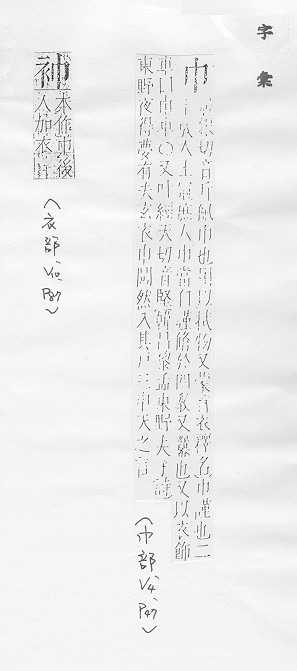 字彙
巾
切音斤佩巾也用以拭物又蒙首衣釋名巾謹也二
十成人士冠庶人巾當自謹脩於四教又羃也又以衣飾
車曰巾車○又叶經天切音堅韓昌黎孟東野失子詩
東野夜得夢有夫玄衣巾闖然入其戶三稱天之言
(巾部、V4、P47)
𧘥
本作巾後
人加衣
(衣部、V10、P87)